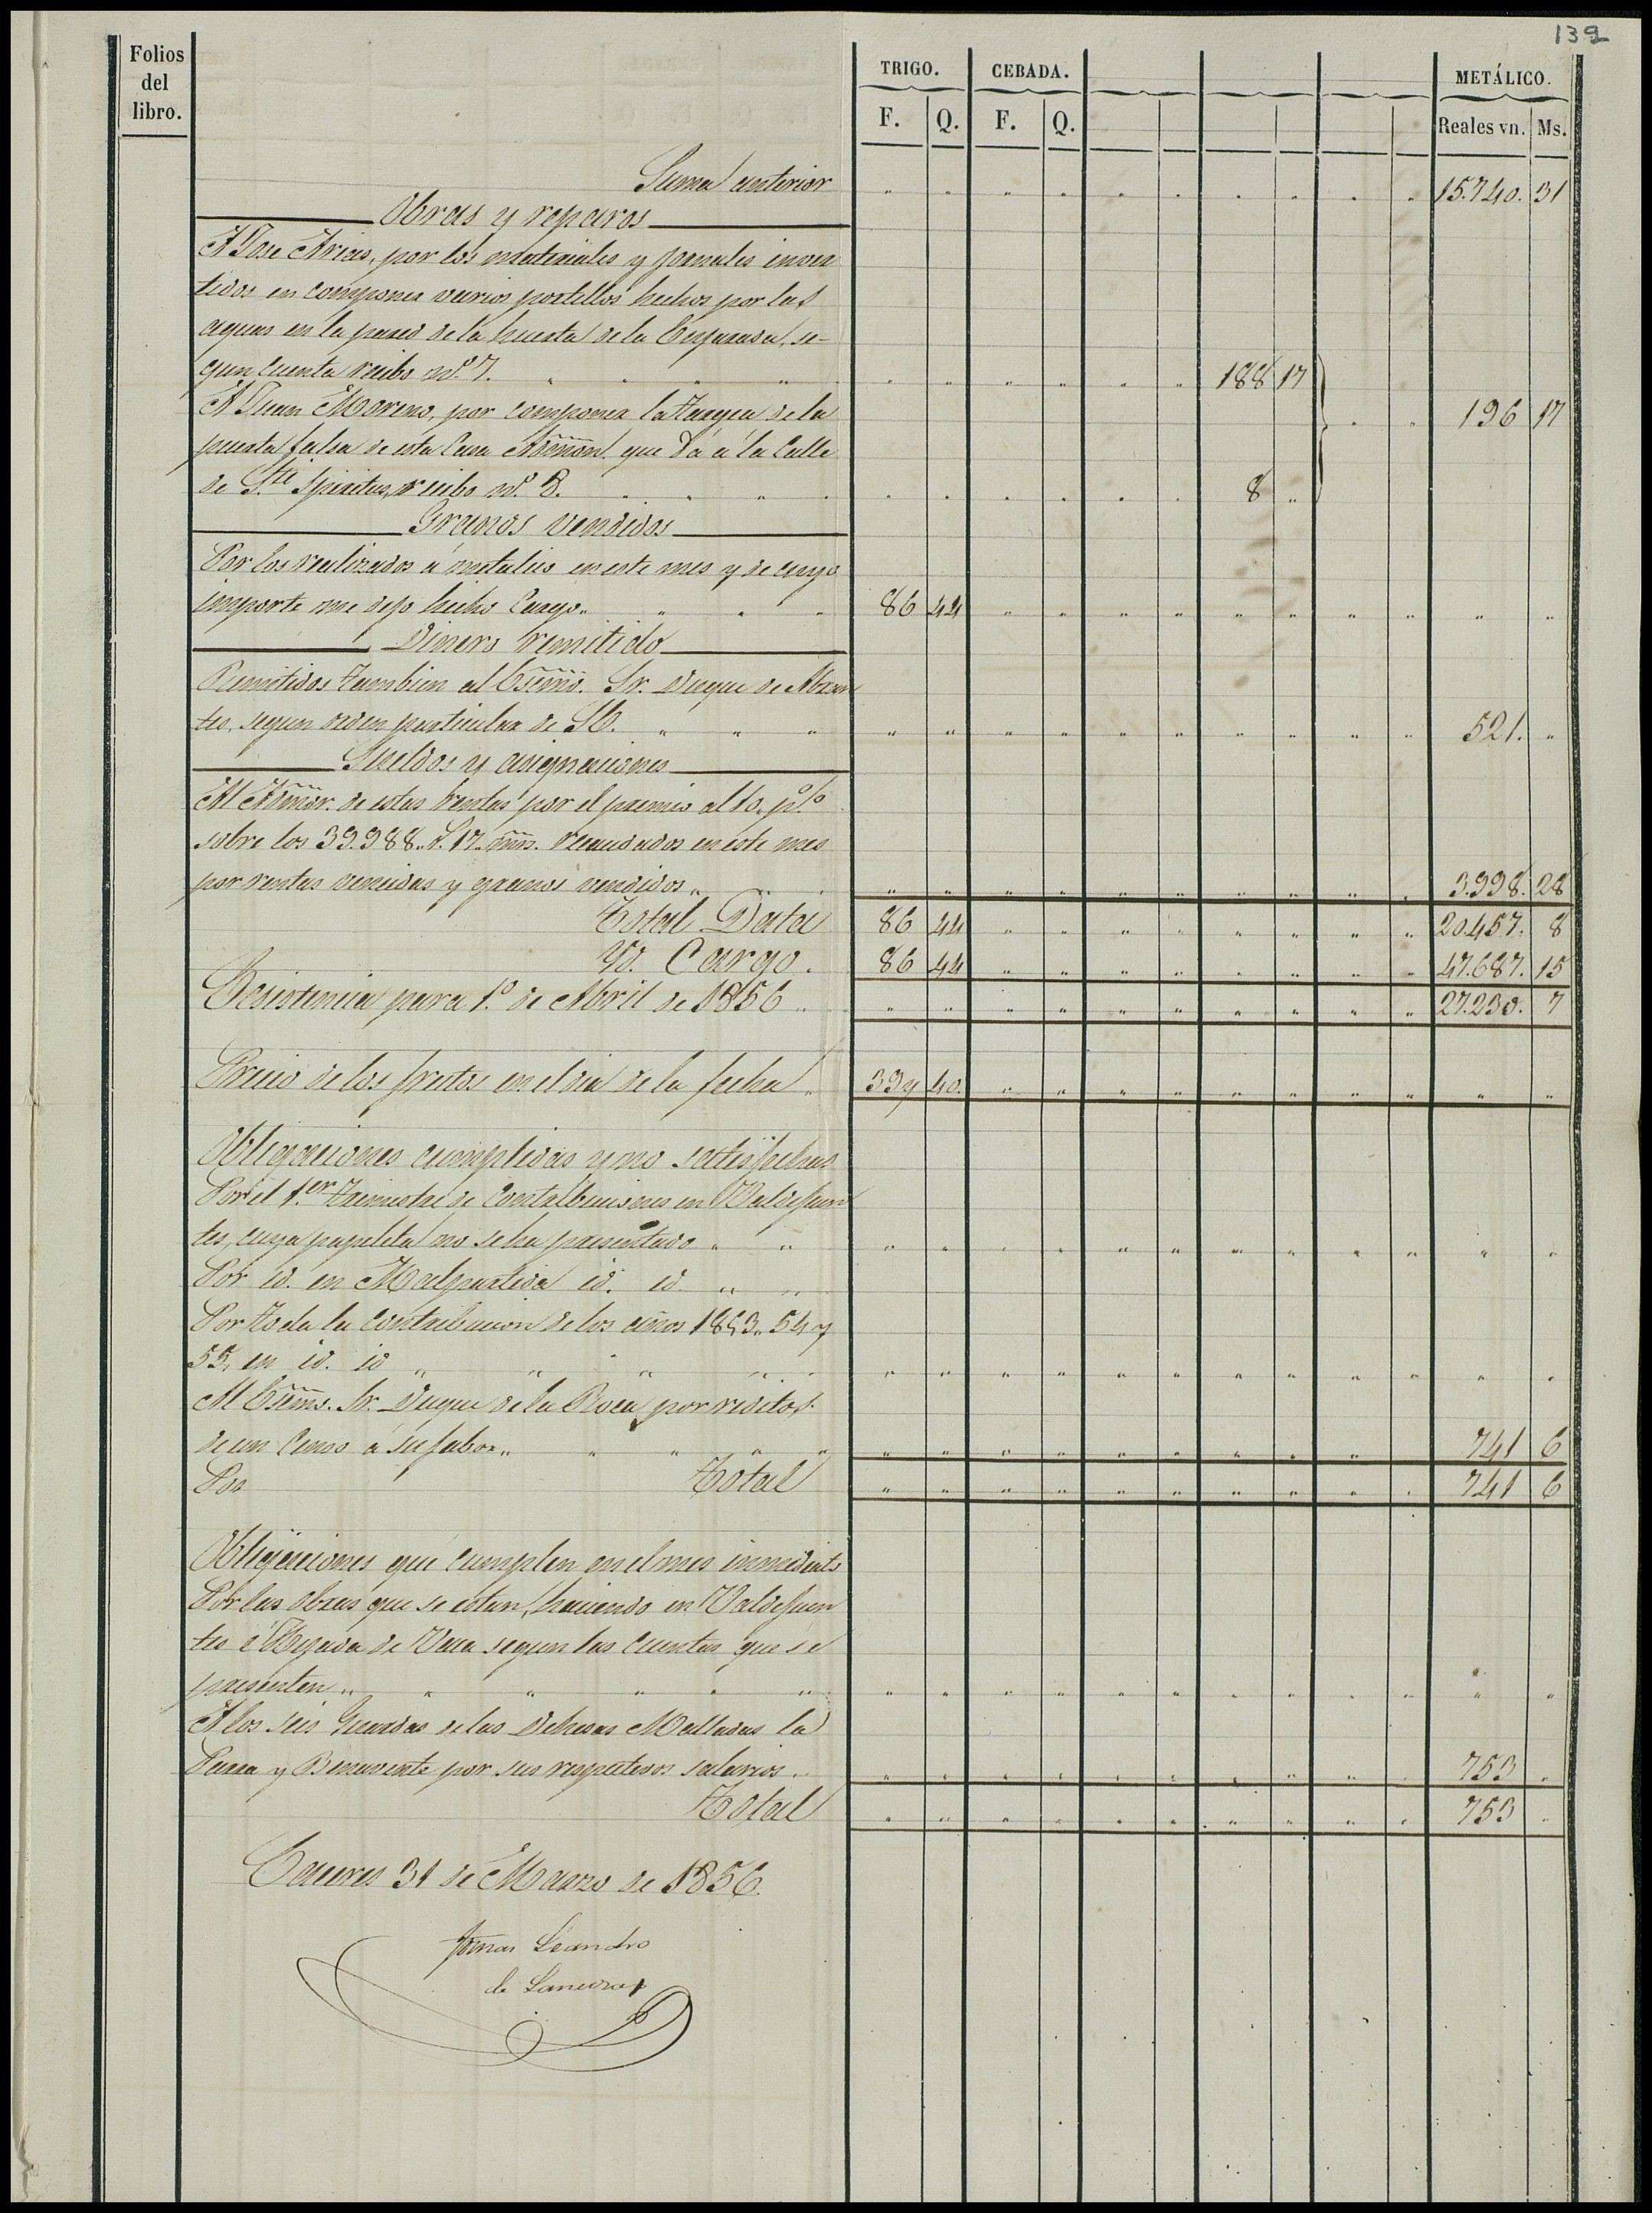 139
Folios
del
libro.
TRIGO. CEBADA. METÁLICO.
F. Q. F. Q. Reales vn. Ms.
Suma anterior 15.740. 31
Obras y reparos
A Jose Arias, por los materiales y jornales inver
tidos en componer varios portillos hechos por las
aguas en la pared de la huerta de la Enjarada, se-
gun cuenta recibo nº. 7. 188 17
A Juan Moreno, por componer la targea de la 196 17
puerta falsa de esta Casa Admon. que dá á la Calle
de Sti Spiritus, recibo nº. 8. 8 "
Granos vendidos
Por los realizados á metalico en este mes y de cuyo
importe me dejo hecho Cargo " 86 44
Dinero remitido
Remitidos tambien al Excmo. Sr. Duque de Abran
tes, segun orden particular de SE. 521. "
Sueldos y asignaciones
Al Admor. de estas rentas por el premio al 10. p%
sobre los 39.988 " r. 17 " mrs. recaudados en este mes
por rentas vencidas y granos vendidos " 3.998. 28
Total Data 86 44 20.457. 8
Yd. Cargo. 86 44 47.687. 15
Existencia para 1º. de Abril de 1856 " 27.230. 7
Precio de los frutos en el dia de la fecha " 39 y 40.
Obligaciones cumplidas y no satisfechas
Por el 1.er trimestre de Contribuciones en Valdefuen
tes, cuya papeleta no se ha presentado " "
Por id. en Malpartida id. id. " "
Por toda la contribucion de los años 1853 " 54 y
55, en id. id "
Al Excmo. Sr. Duque de la Roca por reditos
de un Censo á su fabor " 741 6
Por Total 741 6
Obligaciones que cumplen en el mes inmediato
Por las obras que se estan haciendo en Valdefuen
tes é Yjada de Vaca segun las cuentas que se
presenten "
A los seis Guardas de las Dehesas Malladas la
Parra y Benavente por sus respectivos salarios. 753 "
Total 753 "
Caceres 31 de Marzo de 1856.
Tomas Leandro
de